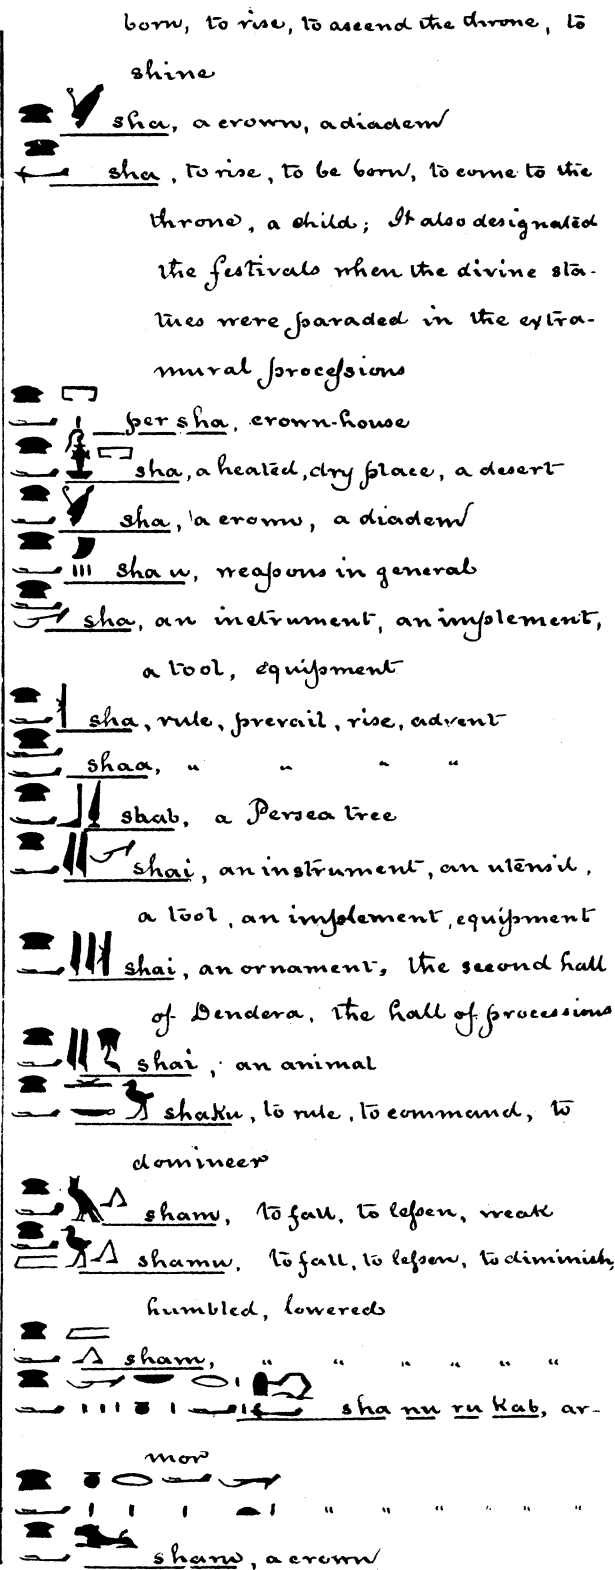 born, to rise, to ascend the throne, to
shine
sha, a crown, a diadem
sha, to rise, to be born, to come to the
throne, a child; It also designated
the festivals when the divine sta-
tues were paraded in the extra-
mural processions
per sha, crown-house
sha, a heated, dry place, a desert
sha, a crown, a diadem
sha u, weapons in general
sha, an instrument, an implement,
a tool, equipment
sha, rule, prevail, rise, advent
shaa, " " " "
shab, a Persea tree
shai, an instrument, an utensil,
a tool, an implement, equipment
shai, an ornament, the second hall
of Dendera, the hall of processions
shai, an animal
shaku, to rule, to command, to
domineer
sham, to fall, to lessen, weak
shamu, to fall, to lessen, to diminish,
humbled, lowered
sham, " " " " " "
sha nu ru kab, ar-
mor
" " " " " "
sham, a crown